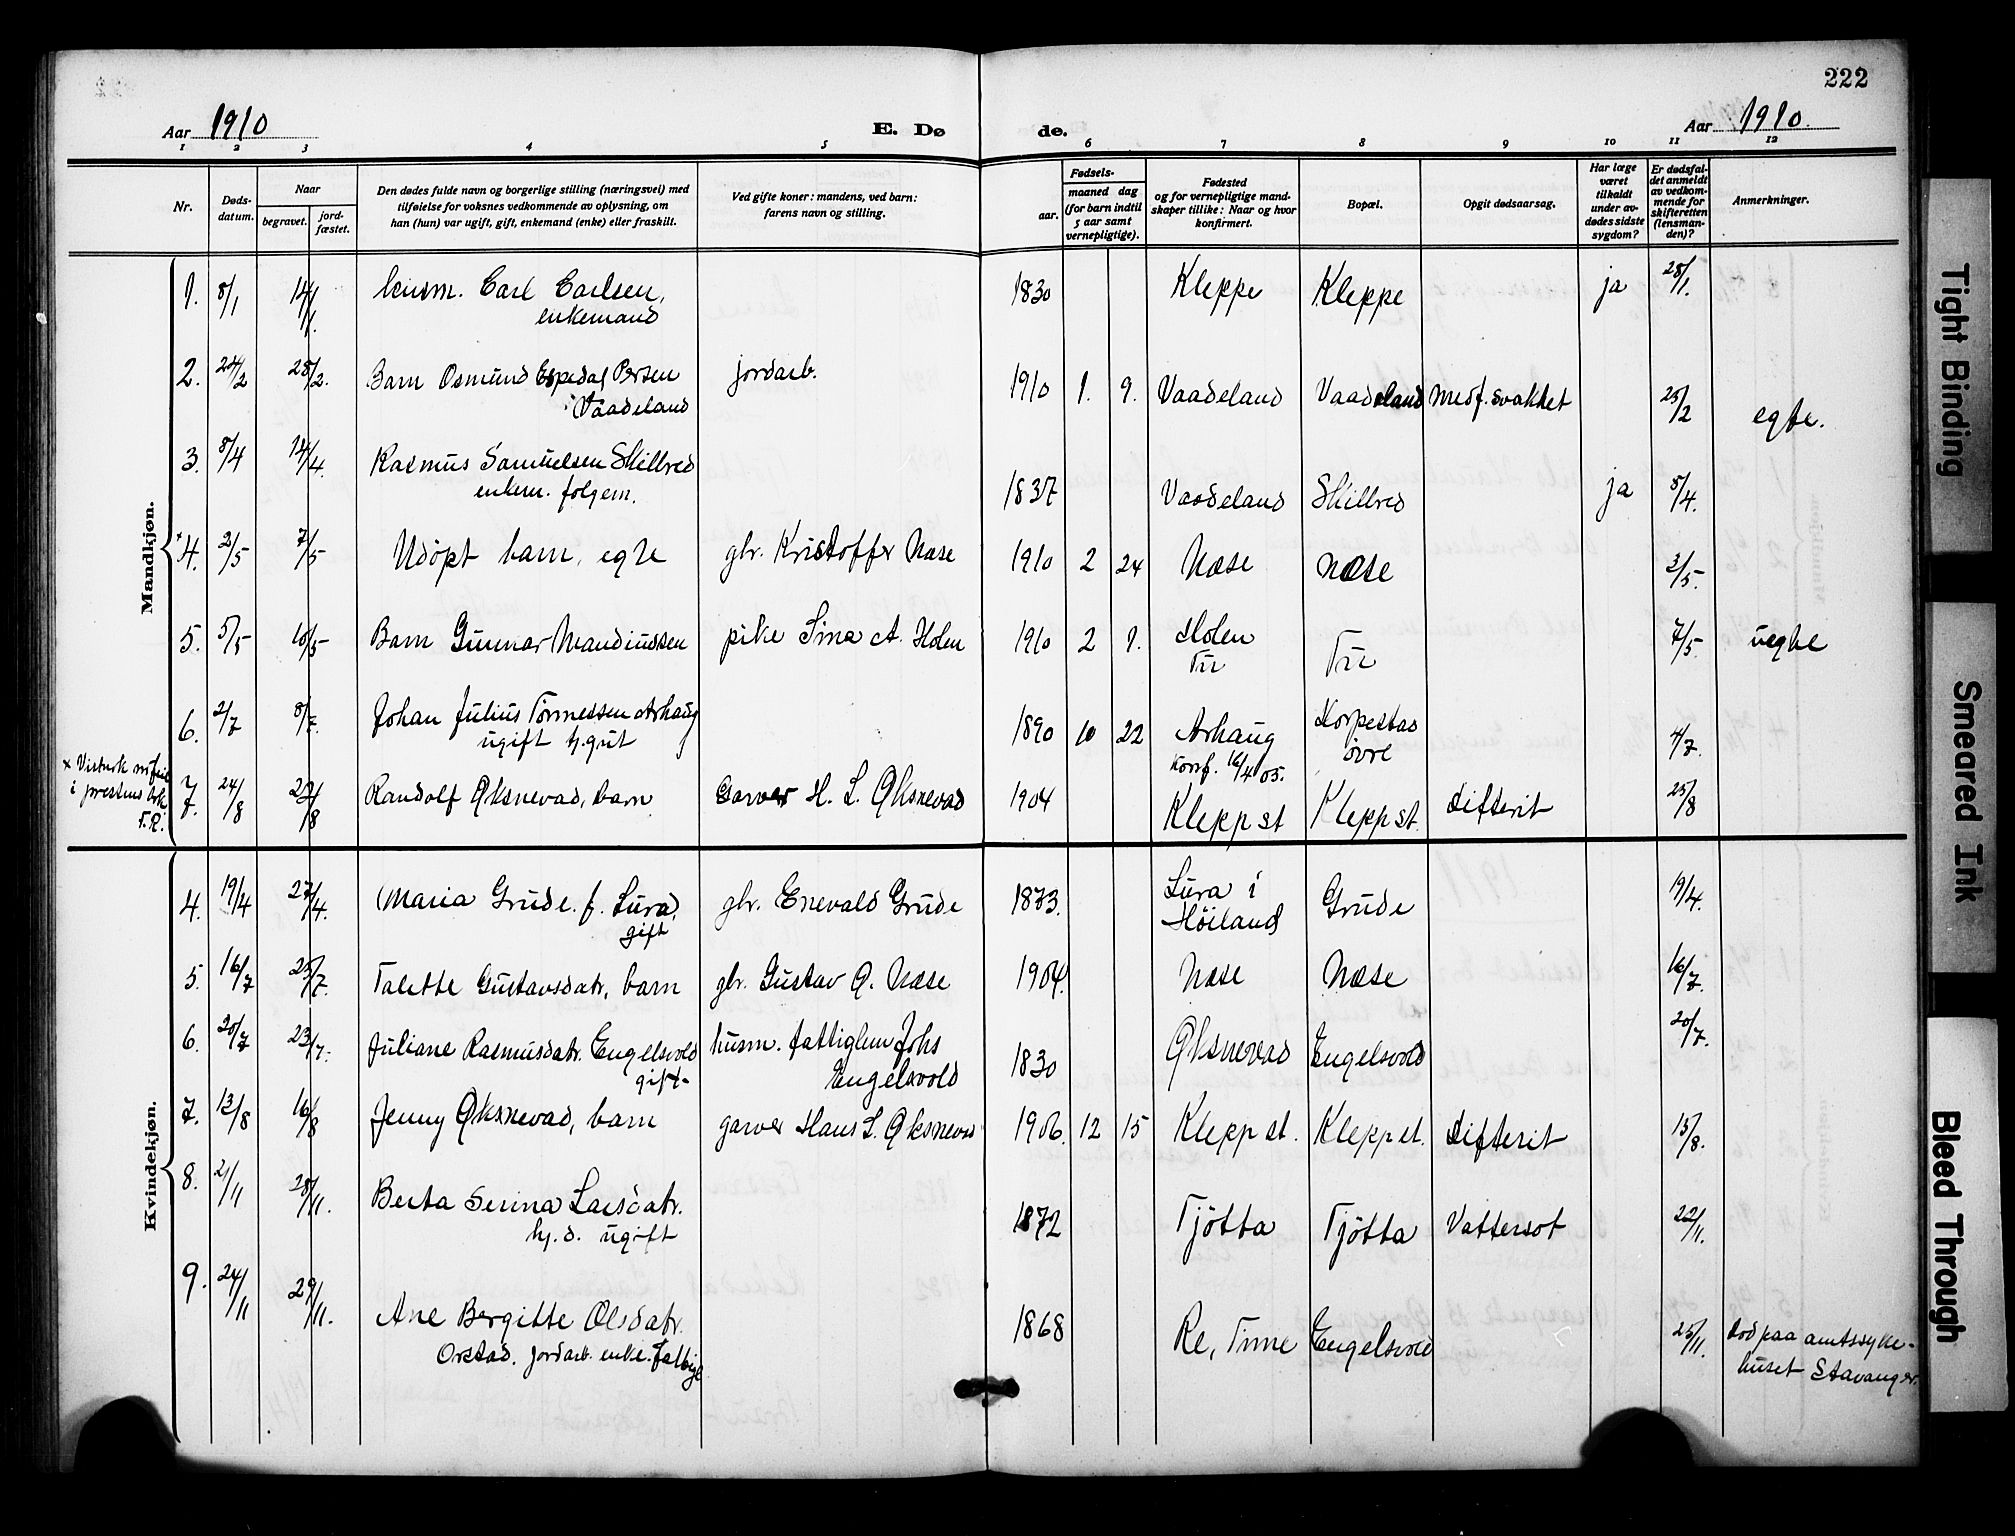 222
Aar 1910 E. Dø de. Aar 1910.
1 2 3 4 5 6 7 8 9 10 11 12
Nr.
Døds-
datum.
Naar
begravet.
jord-
fæstet.
Den dødes fulde navn og borgerlige stilling (næringsvei) med
tilføielse for voksnes vedkommende av oplysning, om
han (hun) var ugift, gift, enkemand (enke) eller fraskilt.
Ved gifte koner: mandens, ved barn:
farens navn og stilling.
Fødsels-
aar.
maaned dag
(for barn indtil
5 aar samt
vernepligtige).
Fødested
og for vernepligtige mand-
skaper tillike: Naar og hvor
konfirmert.
Bopæl.
Opgit dødsaarsag.
Har læge
været
tilkaldt
under av-
dødes sidste
sygdom?
Er dødsfal-
det anmeldt
av vedkom-
mende for
skifteretten
(lensman-
den)?
Anmerkninger.
Mandkjøn.
1. 8/1 14/1. husm. Carl Carlsen, 1830 Kleppe Kleppe ja 28/1.
enkemand
2. 24/2 28/2. Barn Osmund Espedal Persen jordarb. 1910 1. 9. Vaadeland Vaadeland medf. svakhet 25/2 egte.
Vaadeland
3. 8/4 14/4. Rasmus Samuelsen Skillred 1837 Vaadeland Skillred ja 8/4.
enkem. folgem.
×4. 2/5 7/5 Udöpt barn, egte gbr. Kristoffer Næse 1910 2 24 Næse Næse 3/5.
5. 5/5 10/5 Barn Gunnar Mandiussen pike Sina A. Holen 1910 2 9. Holen Tu 7/5. uegte
Tu
6. 2/7 8/7. Johan Julius Tönnessen Arhaug 1890 10 22 Arhaug Korpestad 4/7.
ugift tj.gut konf. 16/4 05. övre
× Virkerk
i prestens bok
T.R.
7. 24/8 27/8 Randolf Øksnevad, barn Garver H. L. Øksnevad 1904 Klepp st Klepp st. difterit 25/8
Kvindekjøn.
4. 19/4 27/4. Maria Grude f. Lura, gbr. Enevald Grude 1873. Lura i Grude 19/4.
gift Höiland
5. 16/7 23/7. Talette Gustavsdatr, barn gbr. Gustav O. Næse 1904. Næse Næse 16/7.
6. 20/7 23/7. Juliane Rasmusdatr. Engelsvold husm. fattiglem Johs 1830 Øksnevad Engelsvold 20/7.
gift Engelsvold
7. 13/8 16/8 Jenny Øksnevad, barn garver Hans L. Øksnevad 1906. 12 15 Klepp st. Klepp st. Difterit 15/8.
8. 21/11 28/11. Berta Serina Larsdatr. 1872 Tjötta Tjötta Vattersot 22/11.
tj.d. ugift
9. 24/11 29/11. Ane Bergitte Olsdatr. 1868 Re, Time Engelsvold 25/11. Död paa amtssyke-
Orstad. jordarb. enke. fattige huset Stavanger.
Tight Binding
Smeared Ink
Bleed Through